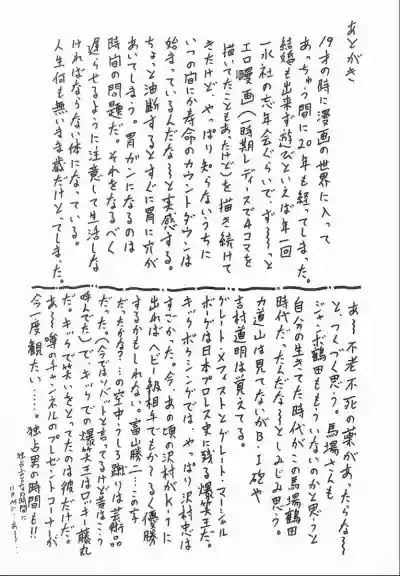 あとがき
19才の時に漫画の世界に入って
あっちゅう間に20年も経ってしまった。
結婚も出来ず遊びといえば年一回
一水社の忘年会ぐらいで、ず〜〜っと
エロ漫画(一時期レディースで4コマを
描いてたこともあったけど)を描き続けて
きたけど、やっぱり知らないうちに
いつの間にか寿命のカウントダウンは
始まっているんだな〜と実感する。
ちょっと油断するとすぐに胃に穴が
あいてしまう。胃がンになるのは
時間の問題だ。それをなるべく
遅らせるように注意して生活しな
ければならない体になっている。
人生何も無いまま歳だけとってしまった。
あ〜不老不死の薬があったらな〜
と、つくづく思う。馬場さんも
ジャンボ鶴田ももういないのかと思うと
自分の生きてた時代がこの馬場鶴田
時代だったんだな〜としみじみ思う。
力道山は見てないがB・I砲や
吉村道明は覚えてる。
グレート・メフィストとゲレート・マーシャル
ボーゲは日本プロレス史に残る爆笑王だ。
キックボクシングでは、やっぱり沢村忠は
すごかった。今、あの頃の沢村がK-1に
出ればヘビー級相手でもか〜るく優勝
するかもしれない。富山勝二…この字
だったかな?…の空中うしろ蹴りは芸術品
だった(今ではソバットと言ってるけど昔はこう
呼んでた)で、キックでの爆笑王はロッキー藤丸
だ。キックで笑いをとってたのは彼だけだ。
あ〜噂のチャンネルのプレゼントコーナーが
今一度観たい……。独占男の時間も!!